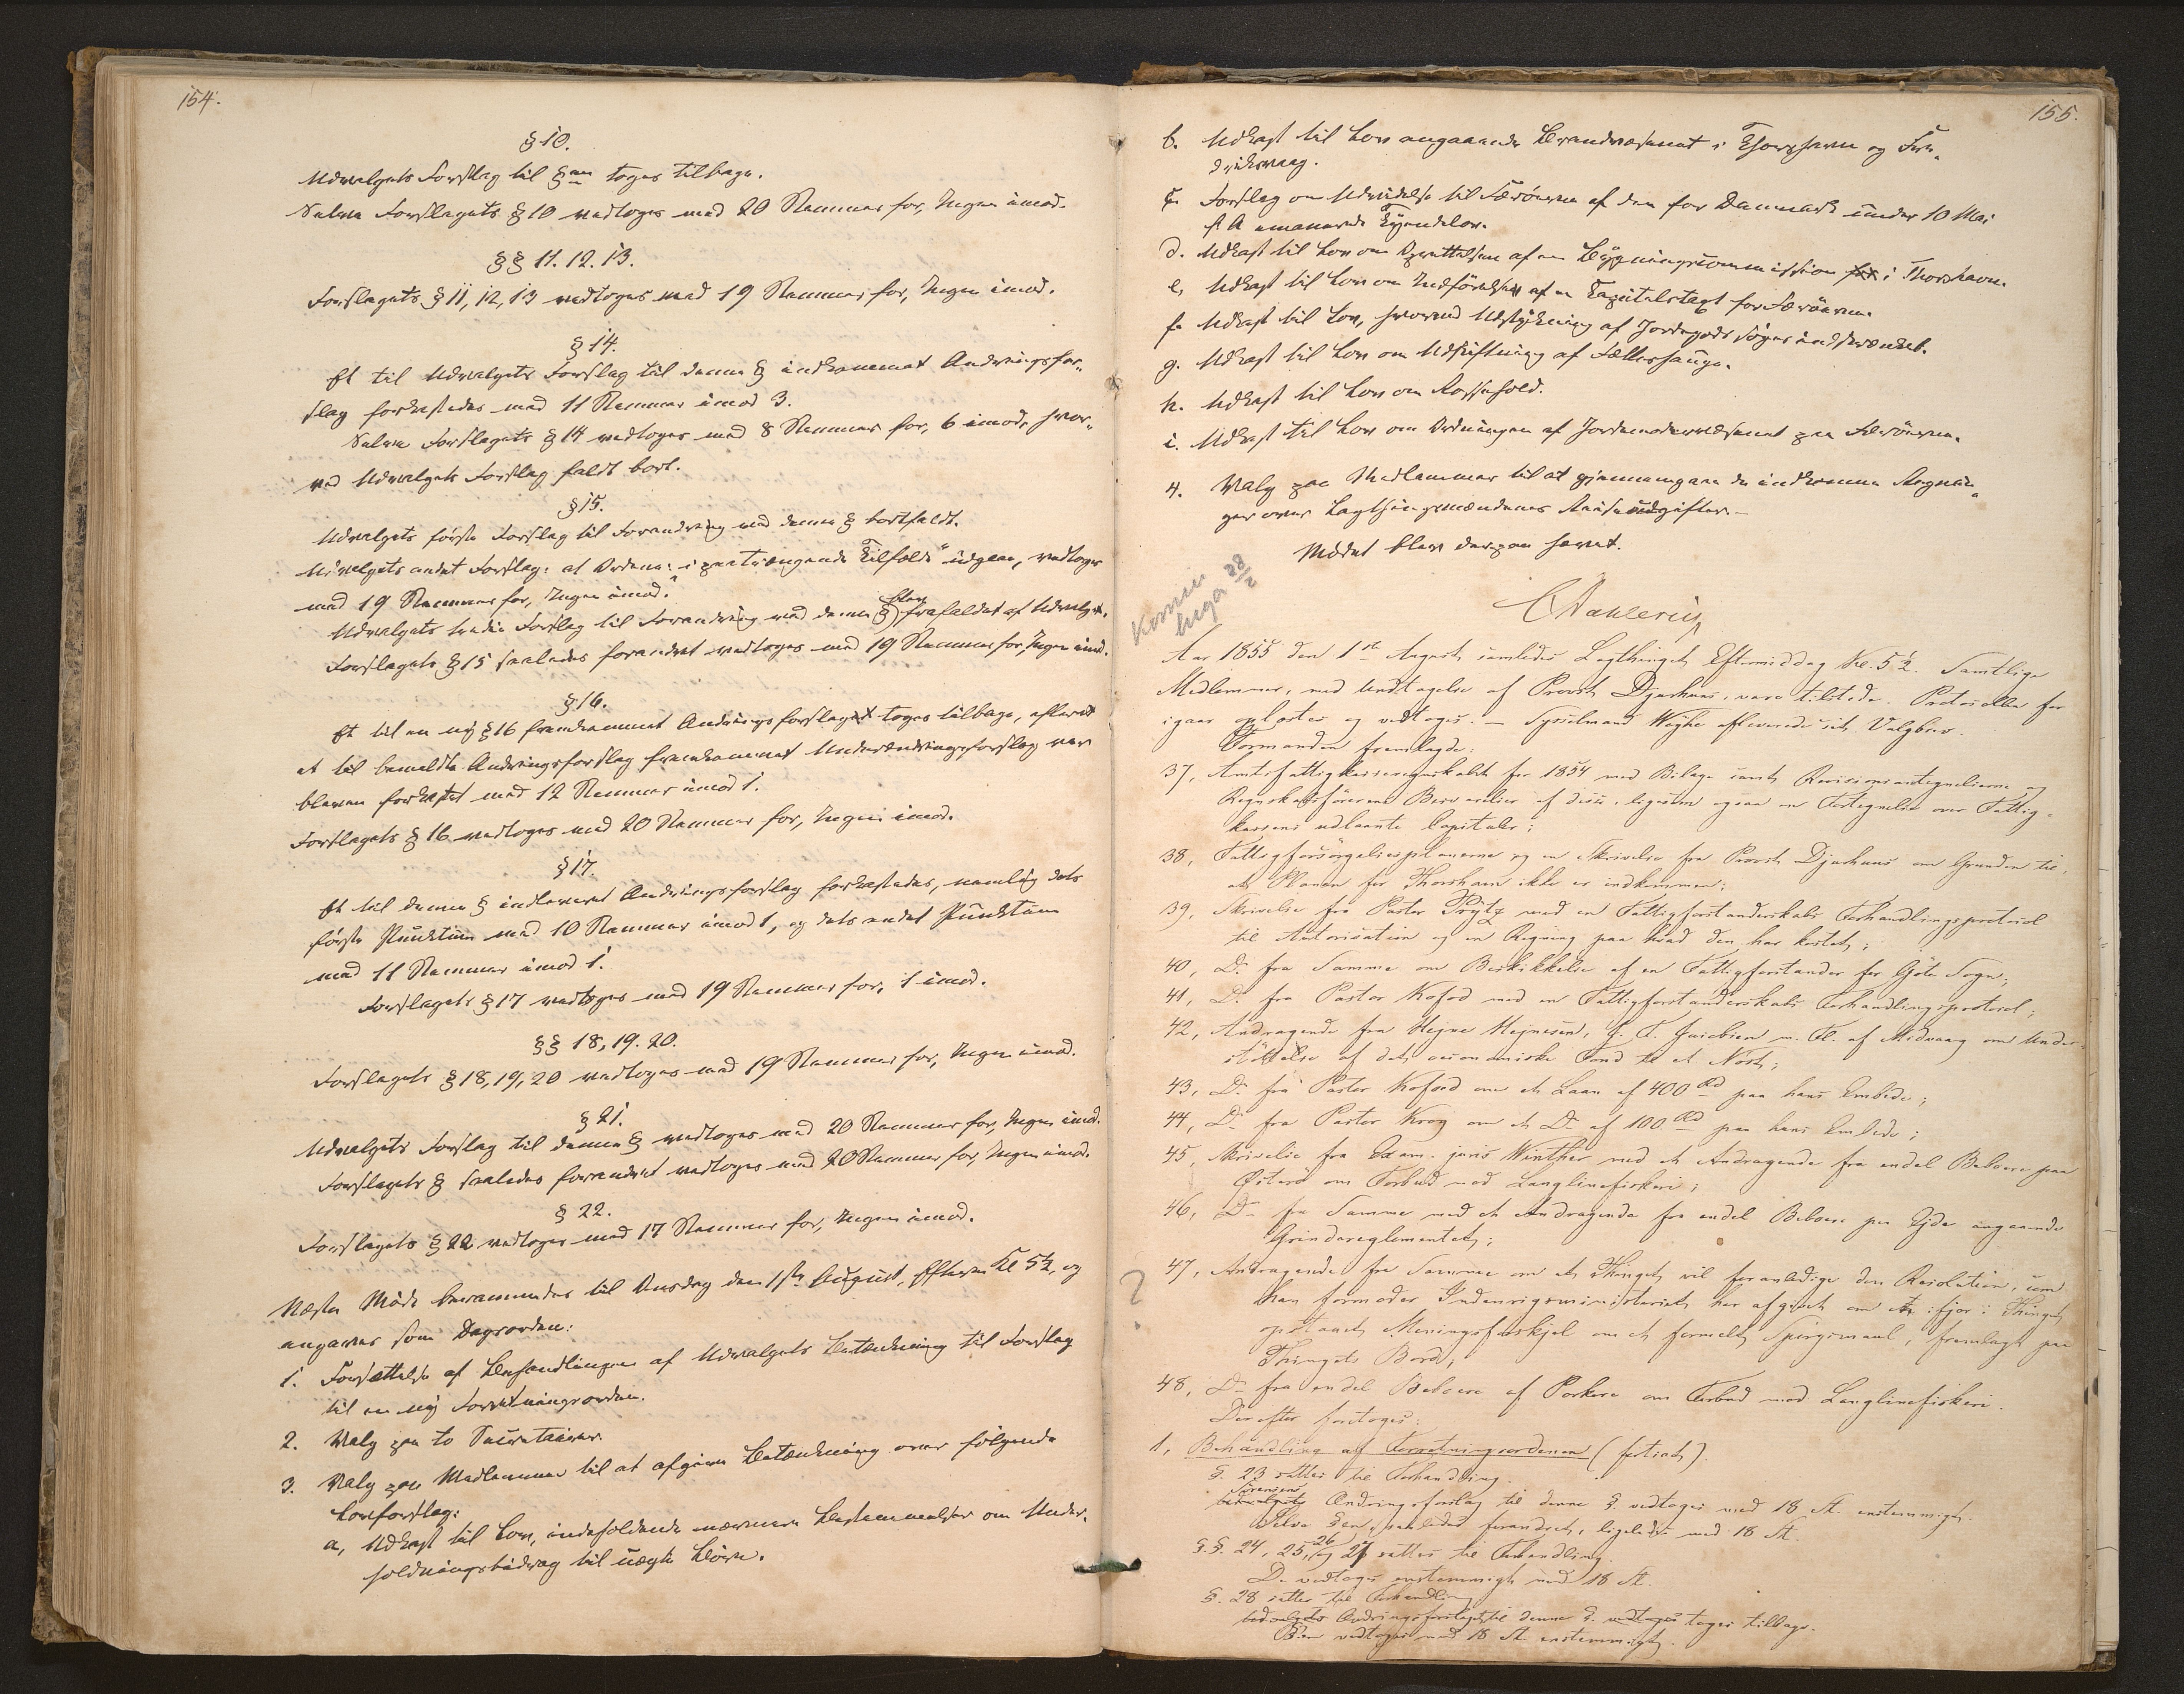 154.
§ 10.
Udvalgets Forslag til §en toges tilbage.
Selve Forslagets § 10 vedtoges med 20 Stemmer for, Ingen imod.
§§ 11. 12. 13.
Forslagets § 11, 12, 13 vedtoges med 19 Stemmer for, Ingen imod.
§ 14.
Et til Udvalgets Forslag til denne § indkommet Ændringsfor-
slag forkastedes med 11 Stemmer imod 3.
Selve Forslagets § 14 vedtoges med 8 Stemmer for, 6 imod, hvor-
ved Udvalgets Forslag faldt bort.
§ 15.
Udvalgets første Forslag til Forandring ved denne § bortfaldt.
Udvalgets andet Forslag: at Ordene: "i paatrængende Tilfælde" udgaae, vedtoges
med 19 Stemmer for, Ingen imod.
Udvalgets tredie Forslag til Forandring ved denne § blev frafaldet af Udvalget.
Forslagets § 15 saaledes forandret vedtoges med 19 Stemmer for, Ingen imod.
§ 16.
Et til en ny § 16 fremkommet Ændringsforslag toges tilbage, efterat
et til bemeldte Ændringsforslag fremkommet Underændringsforslag var
bleven forkastet med 12 Stemmer imod 1.
Forslagets § 16 vedtoges med 20 Stemmer for, Ingen imod.
§ 17.
Et til denne § indleveret Ændringsforslag forkastedes, nemlig dets
første Punktum med 10 Stemmer imod 1, og dets andet Punktum
med 11 Stemmer imod 1.
Forslagets § 17 vedtoges med 19 Stemmer for, 1 imod.
§§ 18, 19. 20.
Forslagets § 18, 19, 20 vedtoges med 19 Stemmer for, Ingen imod.
§ 21.
Udvalgets Forslag til denne § vedtoges med 20 Stemmer for, Ingen imod.
Forslagets § saaledes forandret vedtoges med 20 Stemmer for, Ingen imod.
§ 22.
Forslagets § 22 vedtoges med 17 Stemmer for, Ingen imod.
Næste Møde berammedes til Onsdag den 1ste August, Efterm Kl 5½, og
angaves som Dagsorden:
1. Forsættelse af Behandlingen af Udvalgets Betænkning til Forslag
til en ny Forretningsorden.
2. Valg paa to Secretairer.
3. Valg paa Medlemmer til at afgive Betænkning over følgende
Lovforslag:
a, Udkast til Lov, indeholdende nærmere Bestemmelser om Under-
holdningsbidrag til uægte Børn.
155.
b. Udkast til Lov angaaende Brandvæsenet i Thorshavn og Fre-
driksvaag.
c. Forslag om Udvidelse til Færöerne af den for Danmark under 10 Mai
d. A. emanerede Tyendelov.
d. Udkast til Lov om Oprettelsen af en Bygningscommission i Thorshavn.
e, Udkast til Lov om Indførelse af en Capitelstaxt for Færöerne.
f. Udkast til Lov, hvorved Udstykning af Jordegods søges indskrænket.
g. Udkast til Lov om Udskiftning af Fælleshauge.
h. Udkast til Lov om Rossehold.
i. Udkast til Lov om Ordningen af Jordemodervæsenet paa Færöerne.
4. Valg paa Medlemmer til at gjennemgaae de indkomne Regnin-
ger over Lagthingsmændenes Reiseudgifter.—
Mødet blev derpaa hævet.
CDahlerup
Aar 1855 den 1ste August samledes Lagthinget Eftermiddag Kl. 5½. Samtlige
Medlemmer, med Undtagelse af Provst Djurhuus, vare tilstede. Protocollen for
igaar oplæstes og vedtoges. — Sysselmand Weyhe afleverede sit Valgbrev.
Formanden fremlagde:
37, Amtsfattigkasseregnskabet for 1854 med Bilage samt Revisionsantegnelserne og
Regnskabsførerens Besvarelser af disse, ligesom ogsaa en Fortegnelse over Fattig-
kassens udlaante Capitaler;
38, Fattigforsørgelsesplanerne og en Skrivelse fra Provst Djurhuus om Grunden til,
at Planen for Thorshavn ikke er indkommen;
39, Skrivelse fra Pastor Prytz med en Fattigforstanderskabs Forhandlingsprotocol
til Autorisation og en Regning paa hvad den har kostet;
40, Do fra Samme om Beskikkelse af en Fattigforstander for Gjöte Sogn;
41, Do fra Pastor Kofod med en Fattigforstanderskabs Forhandlingsprotocol;
42, Andragende fra Hejne Hejnesen, J. F. Jacobsen m. Fl. af Midvaag om Under-
støttelse af det oeconomiske Fond til et Nøst;
43, Do fra Pastor Kofoed om et Laan af 400 Rd paa hans Embede;
44, Do fra Pastor Krog om et Do af 100 Rd paa hans Embede;
45, Skrivelse fra Exam. juris Winther med et Andragende fra endel Beboere paa
Østerö om Forbud mod Langlinefiskeri;
46, Do fra Samme med et Andragende fra endel Beboere paa Ejde angaaende
Grindereglementet;
47, Andragende fra Samme om at Thinget vil foranledige den Resolution, som
han formoder Indenrigsministeriet har afgivet om et ifjor i Thinget
opstaaet Meningsforskjel om et formelt Spørgsmaal, fremlagt paa
Thingets Bord;
48, Do fra endel Beboere af Porkere om Forbud mod Langlinefiskeri.
Derefter foretoges:
1, Behandling af Forretningsordenen (fortsat).
§. 23 sattes til Forhandling.
Sörensens Ændringsforslag til denne §. vedtoges med 18 St. enstemmigt.
Selve §en, saaledes forandret, ligeledes med 18 St.
§.§. 24, 25, 26 og 27 sattes til Forhandling.
De vedtoges enstemmigt med 18 St.
§. 28 sattes til Forhandling
Udvalgets Ændringsforslag til denne §. vedtoges toges tilbage.
§en vedtoges med 18 St. enstemmigt.